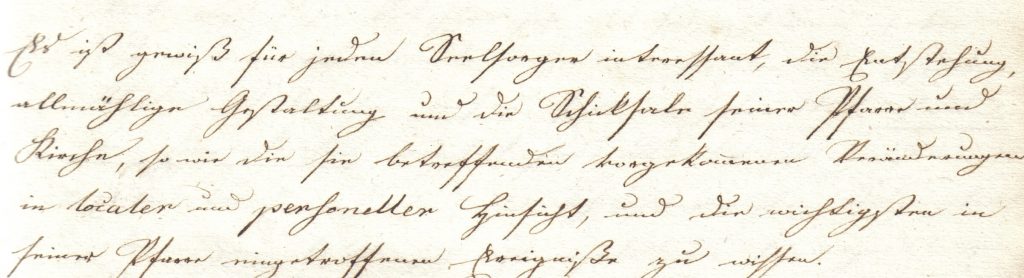 Es ist gewiß für jeden Seelsorger interessant, die Entstehung,
allmählige Gestaltung und die Schicksale seiner Pfarre und
Kirche, so wie die sie betreffenden vorgekommenen Veränderungen
in localer und personeller Hinsicht, und die wichtigsten in
seiner Pfarre eingetroffenen Ereigniße zu wissen.